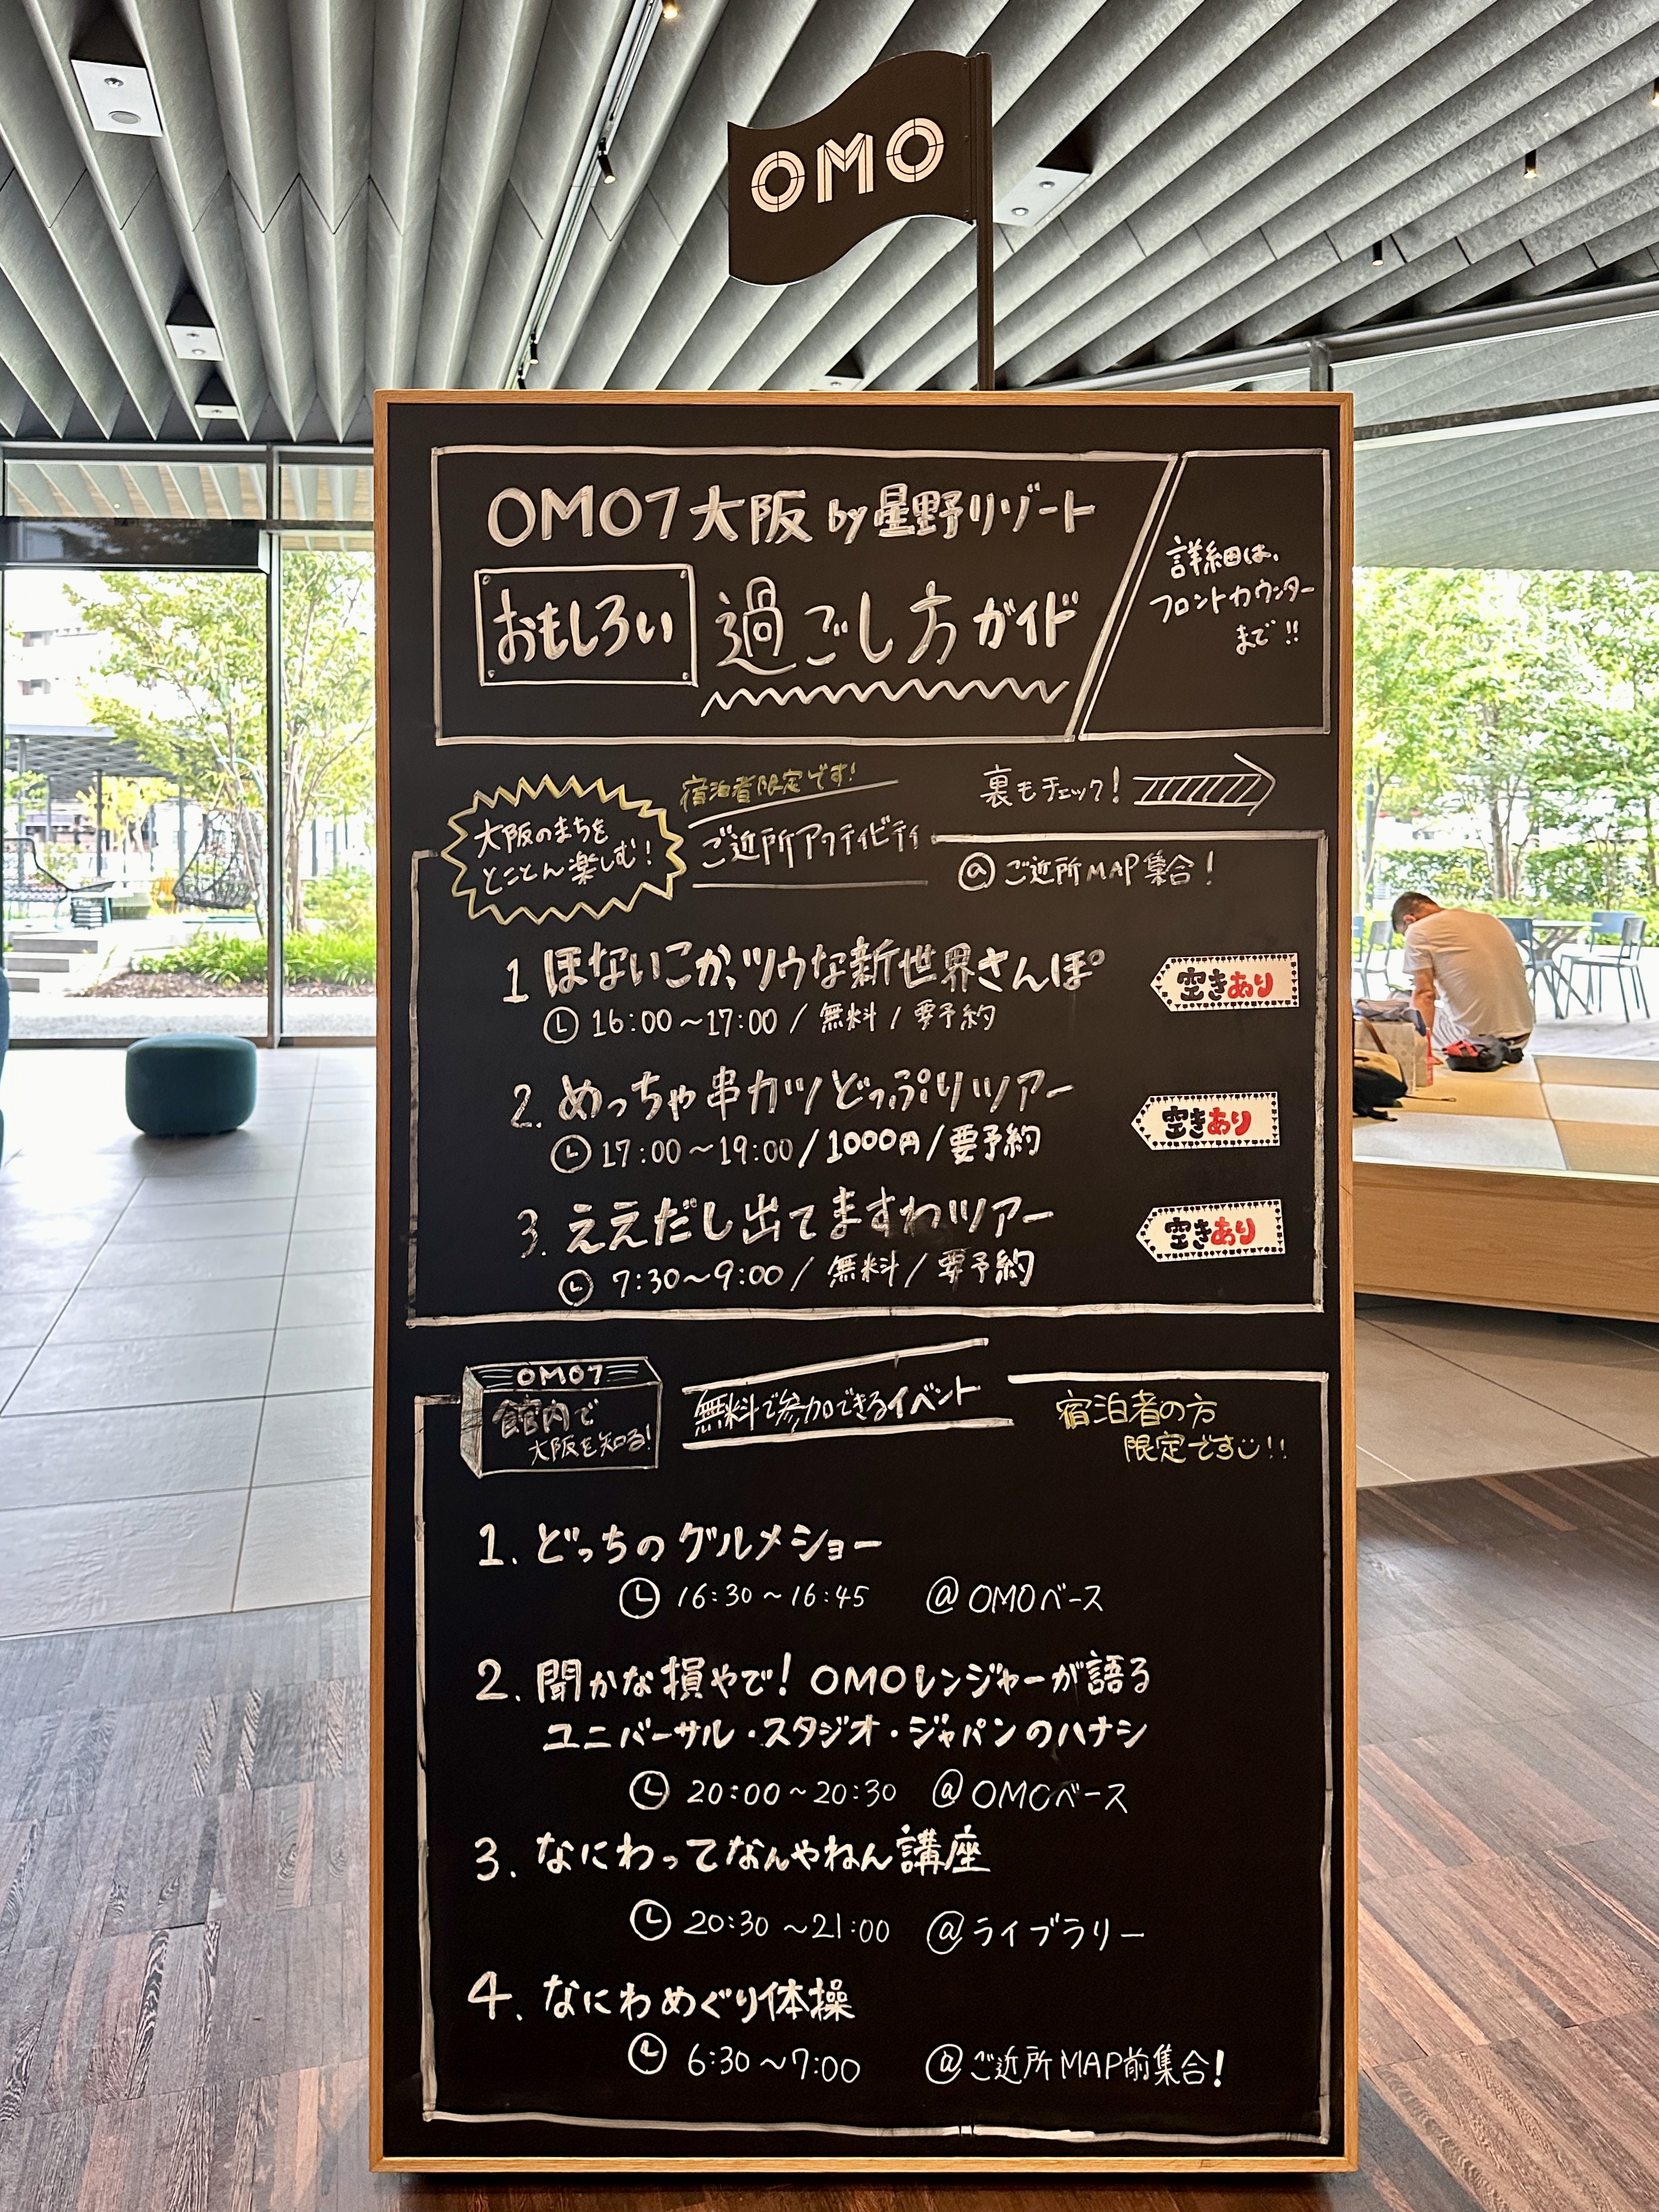 OMO
OMO7大阪 by 星野リゾート
おもしろい 過ごし方ガイド
詳細は、
フロントカウンター
まで!!
大阪のまちを
とことん楽しむ!
宿泊者限定です!
ご近所アクティビティ
裏もチェック!
@ご近所MAP集合!
1 ほないこか、ツウな新世界さんぽ
16:00〜17:00/無料/要予約
空きあり
2. めっちゃ串カツどっぷりツアー
17:00〜19:00/1000円/要予約
空きあり
3. ええだし出てますわツアー
7:30〜9:00/無料/要予約
空きあり
OMO7
館内で
大阪を知る!
無料で参加できるイベント
宿泊者の方
限定です!!
1. どっちのグルメショー
16:30〜16:45 @OMOベース
2. 聞かな損やで!OMOレンジャーが語る
ユニバーサル・スタジオ・ジャパンのハナシ
20:00〜20:30 @OMOベース
3. なにわってなんやねん講座
20:30〜21:00 @ライブラリー
4. なにわめぐり体操
6:30〜7:00 @ご近所MAP前集合!